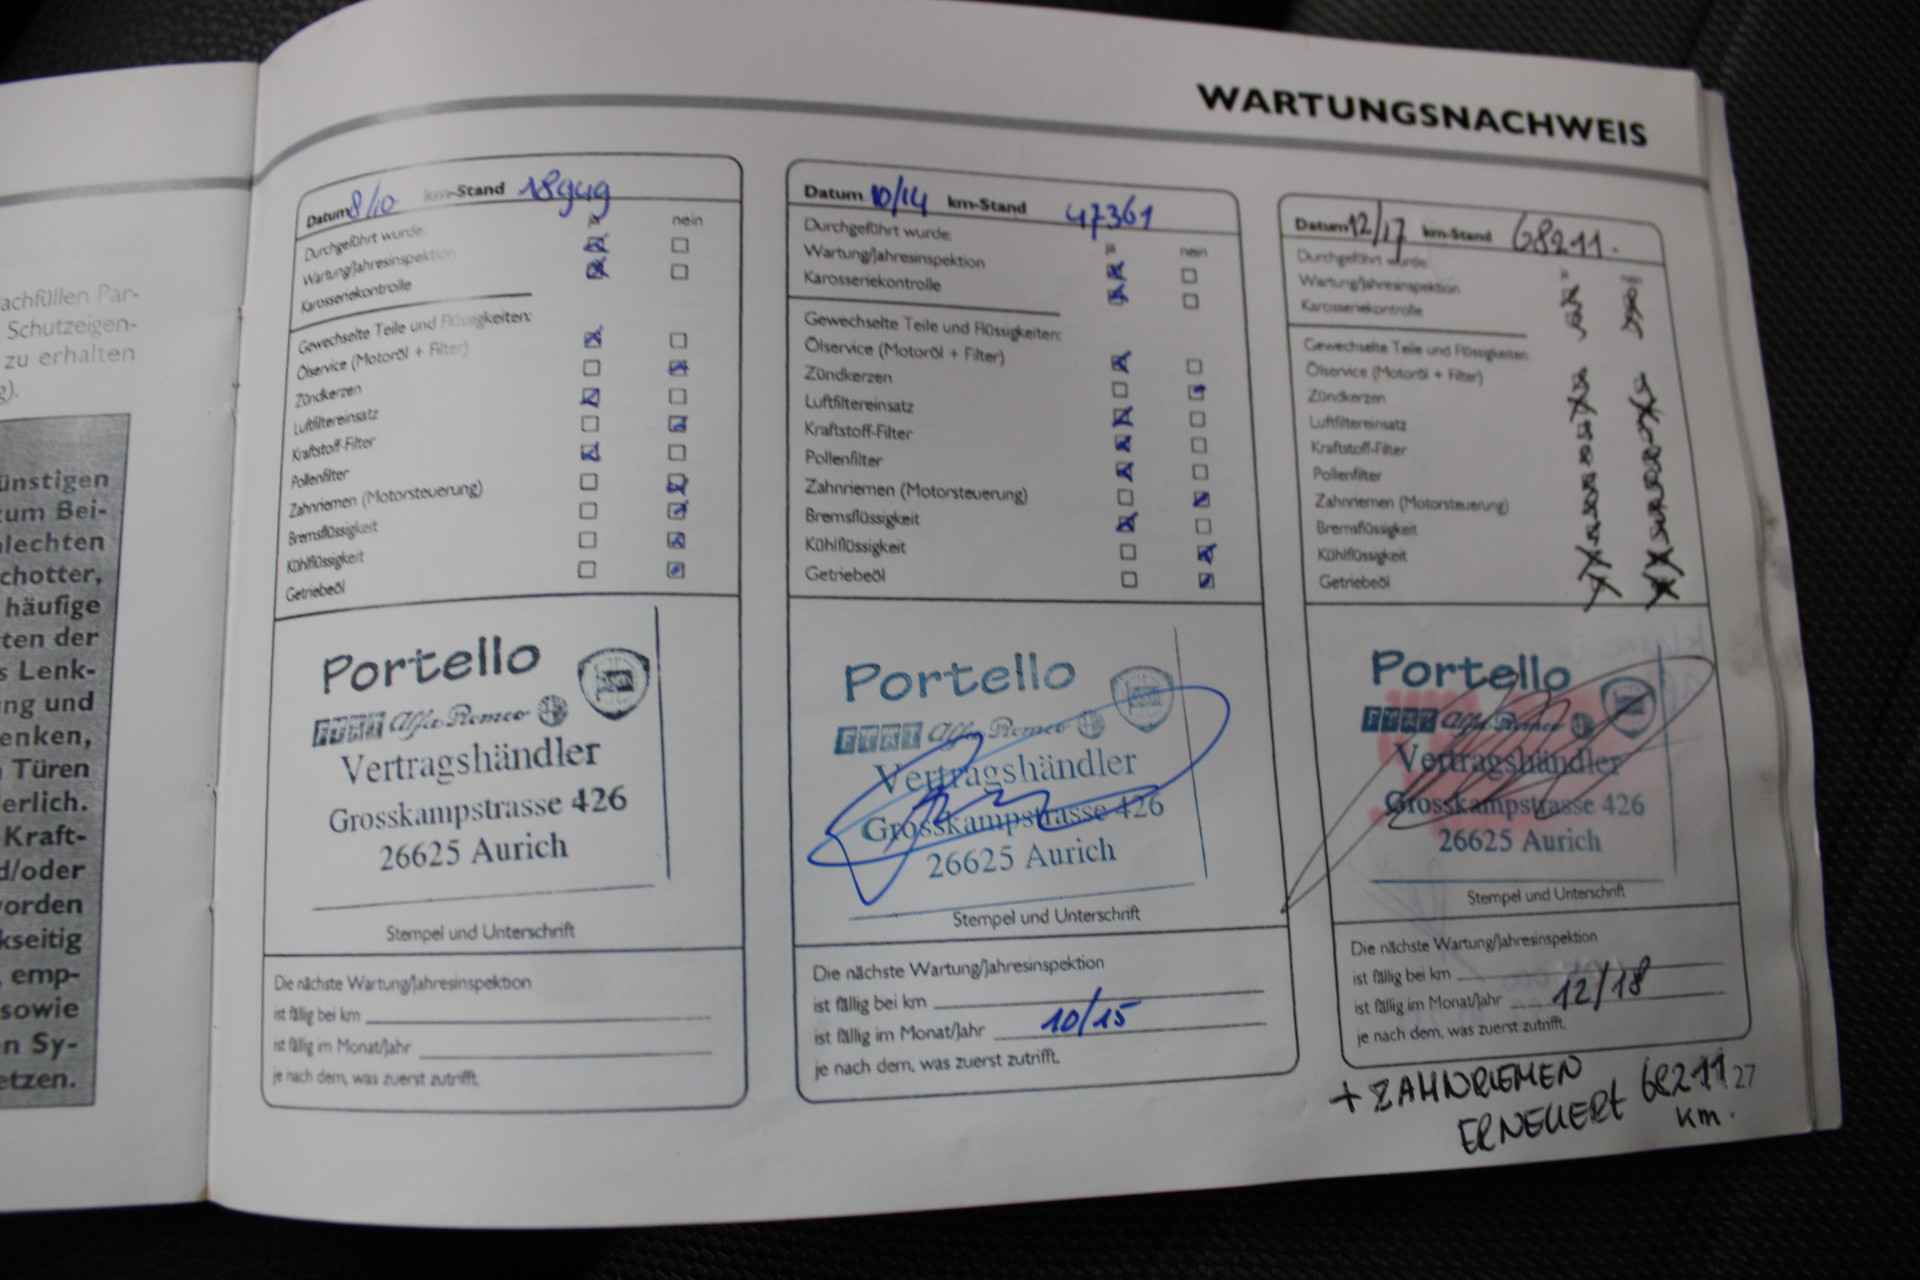 achfüllen Par-
Schutzeigen-
zu erhalten
g).
ünstigen
zum Bei-
hlechten
chotter,
häufige
ten der
s Lenk-
ung und
enken,
n Türen
erlich.
Kraft-
d/oder
vorden
kseitig
, emp-
sowie
n Sy-
etzen.
WARTUNGSNACHWEIS
Datum 8/10 km-Stand 18949
Durchgeführt wurde: ja nein
Wartung/Jahresinspektion
Karosseriekontrolle
Gewechselte Teile und Flüssigkeiten:
Ölservice (Motoröl + Filter)
Zündkerzen
Luftfiltereinsatz
Kraftstoff-Filter
Pollenfilter
Zahnriemen (Motorsteuerung)
Bremsflüssigkeit
Kühlflüssigkeit
Getriebeöl
Portello
FIAT Alfa Romeo
Vertragshändler
Grosskampstrasse 426
26625 Aurich
Stempel und Unterschrift
Die nächste Wartung/Jahresinspektion
ist fällig bei km
ist fällig im Monat/Jahr
je nach dem, was zuerst zutrifft.
Datum 10/14 km-Stand 47361
Durchgeführt wurde: ja nein
Wartung/Jahresinspektion
Karosseriekontrolle
Gewechselte Teile und Flüssigkeiten:
Ölservice (Motoröl + Filter)
Zündkerzen
Luftfiltereinsatz
Kraftstoff-Filter
Pollenfilter
Zahnriemen (Motorsteuerung)
Bremsflüssigkeit
Kühlflüssigkeit
Getriebeöl
Portello
FIAT Alfa Romeo
Vertragshändler
Grosskampstrasse 426
26625 Aurich
Stempel und Unterschrift
Die nächste Wartung/Jahresinspektion
ist fällig bei km
ist fällig im Monat/Jahr 10/15
je nach dem, was zuerst zutrifft.
Datum 12/17 km-Stand 68211.
Durchgeführt wurde: ja nein
Wartung/Jahresinspektion
Karosseriekontrolle
Gewechselte Teile und Flüssigkeiten:
Ölservice (Motoröl + Filter)
Zündkerzen
Luftfiltereinsatz
Kraftstoff-Filter
Pollenfilter
Zahnriemen (Motorsteuerung)
Bremsflüssigkeit
Kühlflüssigkeit
Getriebeöl
Portello
FIAT Alfa Romeo
Vertragshändler
Grosskampstrasse 426
26625 Aurich
Stempel und Unterschrift
Die nächste Wartung/Jahresinspektion
ist fällig bei km
ist fällig im Monat/Jahr 12/18
je nach dem, was zuerst zutrifft.
+ ZAHNRIEMEN
ERNEUERT 68211 km.
27